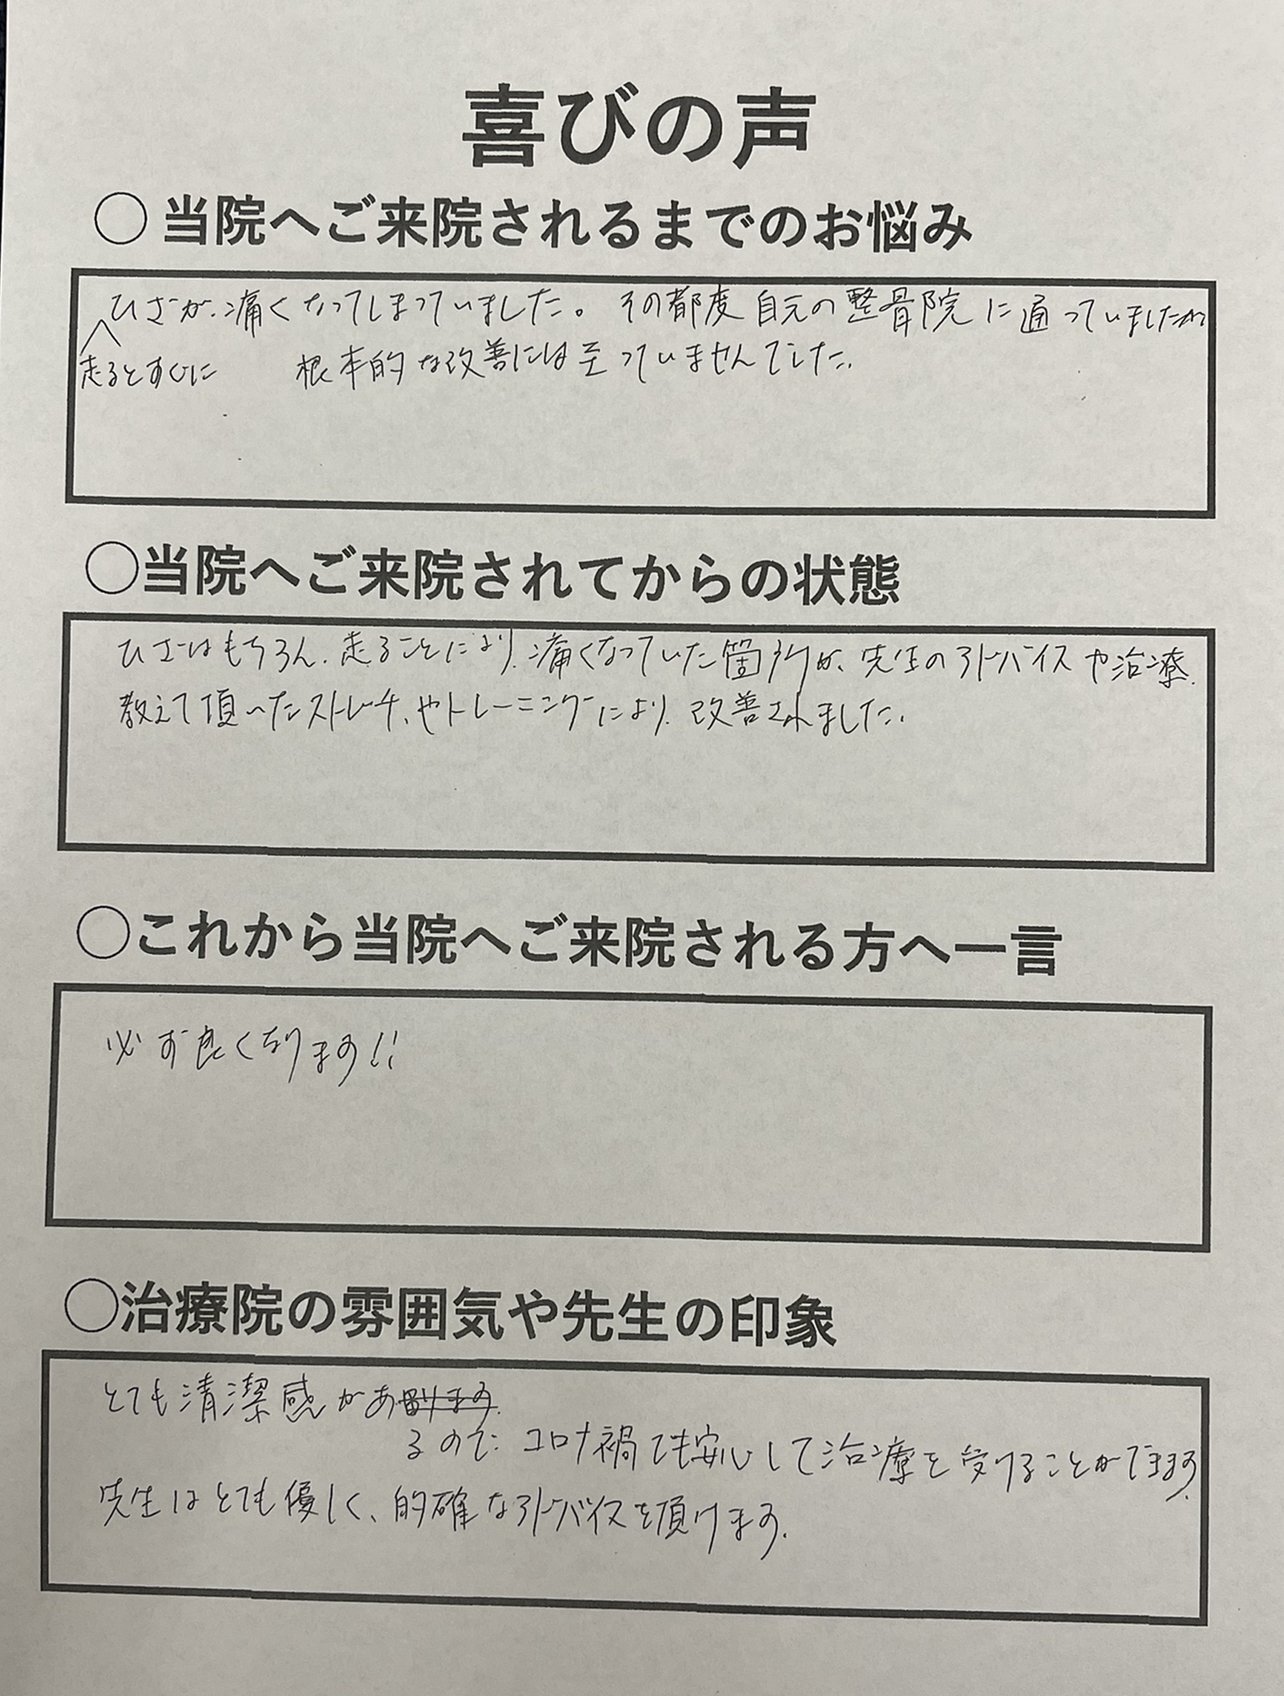 喜びの声
○ 当院へご来院されるまでのお悩み
ひざが、痛くなってしまっていました。その都度 自元の整骨院に通っていましたが
走るとすぐに 根本的な改善には至っていませんでした。
○当院へご来院されてからの状態
ひざはもちろん、走ることにより、痛くなっていた箇所が、先生のアドバイスや治療、
教えて頂いたストレッチ、やトレーニングにより、改善されました。
○これから当院へご来院される方へ一言
必ず良くなります!!
○治療院の雰囲気や先生の印象
とても清潔感があります。
るので、コロナ禍でも安心して治療を受けることができます。
先生はとても優しく、的確なアドバイスを頂けます。